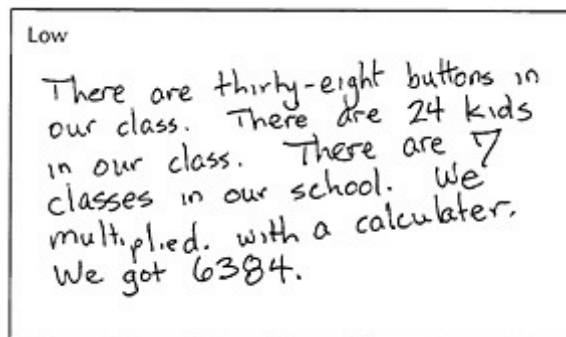 Low
There are thirty-eight buttons in
our class. There are 24 kids
in our class. There are 7
classes in our school. We
multiplied. with a calculater.
We got 6384.